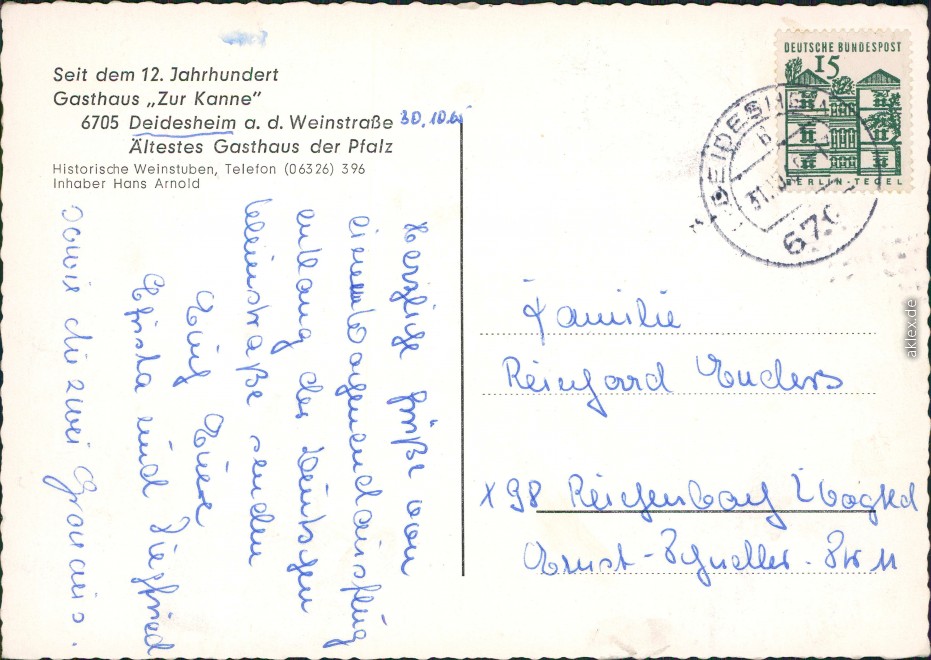 Seit dem 12. Jahrhundert
Gasthaus „Zur Kanne"
6705 Deidesheim a. d. Weinstraße 30.10.65
Ältestes Gasthaus der Pfalz
Historische Weinstuben, Telefon (06326) 396
Inhaber Hans Arnold
Herzliche Grüße von
einem Wochenendausflug
entlang der Deutschen
Weinstraße senden
Euch Eure
Christa und Siegfried
sowie die zwei Gromeis.
DEUTSCHE BUNDESPOST
15
BERLIN-TEGEL
DEIDESHEIM
b
670
Familie
Reinhard Enders
X 98 Reichenbach Vogtld
Ernst-Schneller-Str 11
aklex.de